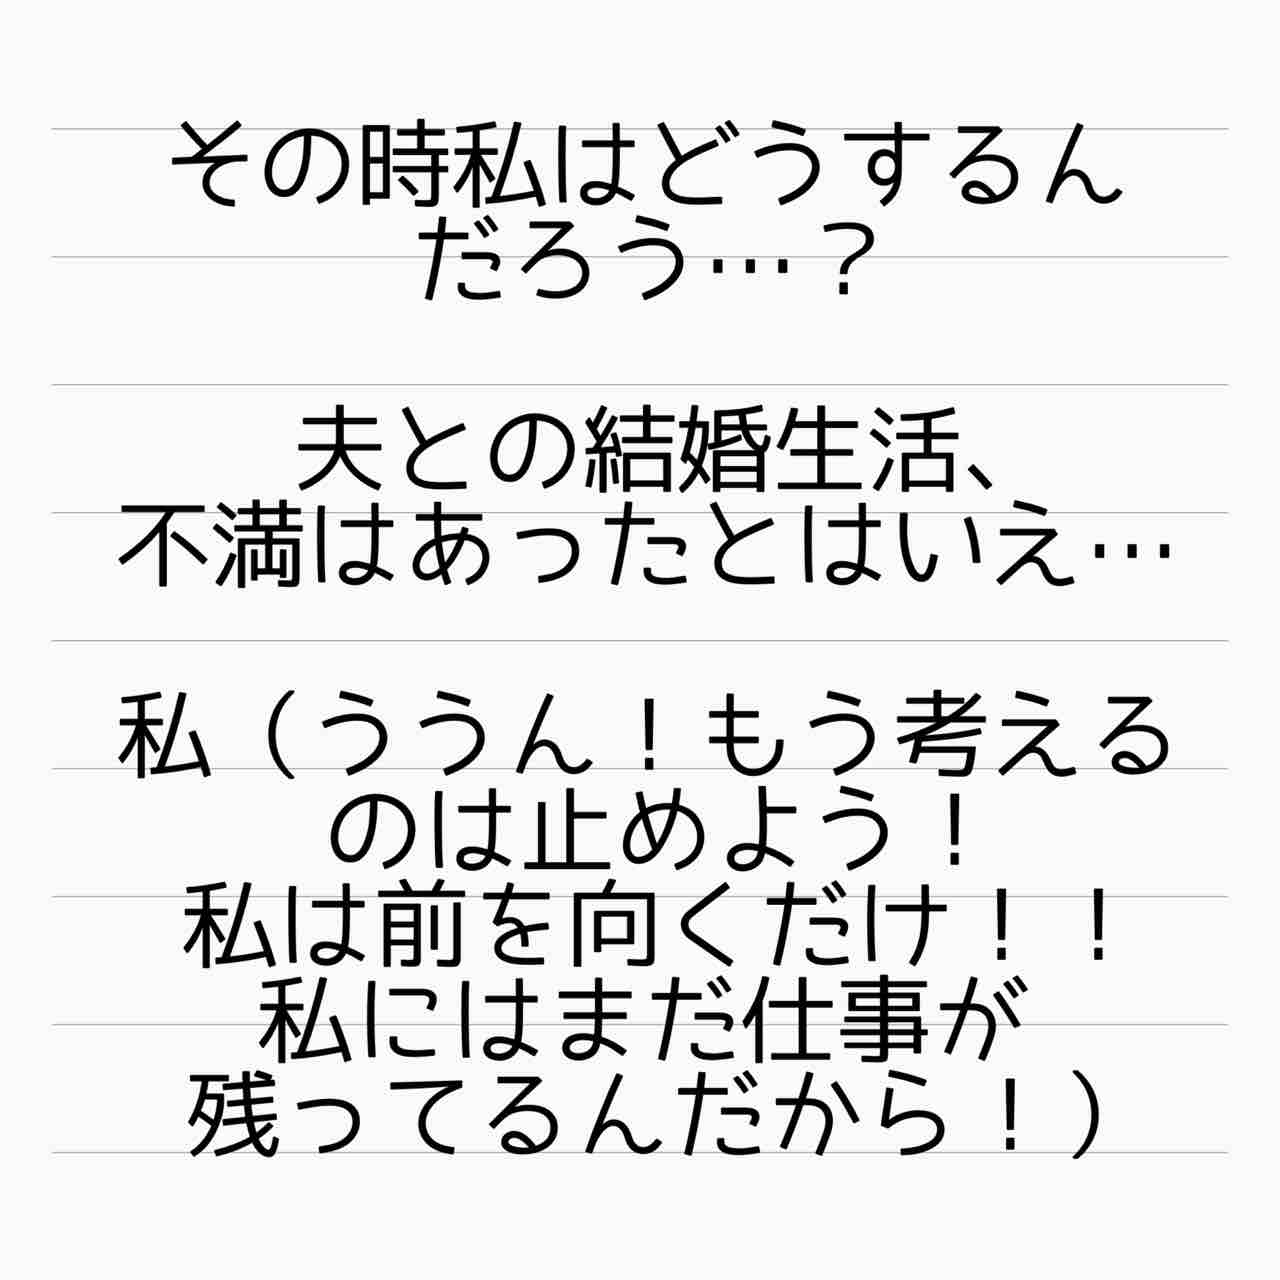 その時私はどうするん
だろう…？
夫との結婚生活、
不満はあったとはいえ…
私（ううん！もう考える
のは止めよう！
私は前を向くだけ！！
私にはまだ仕事が
残ってるんだから！）